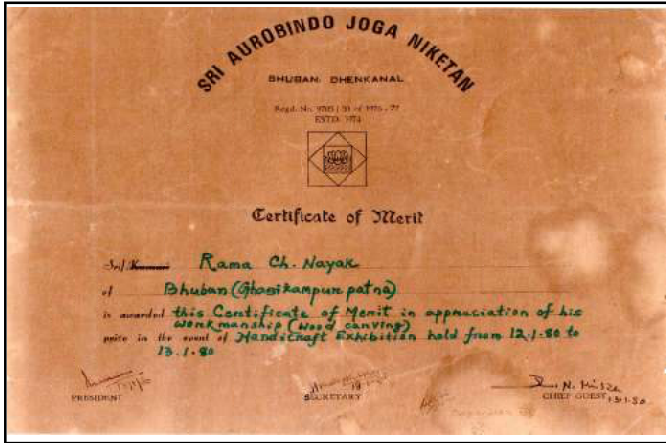 SRI AUROBINDO JOGA NIKETAN
BHUBAN: DHENKANAL
Regd. No. of 1976-77
ESTD. 1974
Certificate of Merit
Sri/Kumari Rama Ch. Nayak
of Bhuban (Ghasikampur patna)
is awarded this Certificate of Merit in appreciation of his
workmanship (wood carving)
price in the event of Handicraft Exhibition held from 12.1.80 to
13.1.80
PRESIDENT
SECRETARY
N. Misra
CHIEF GUEST 13.1.80